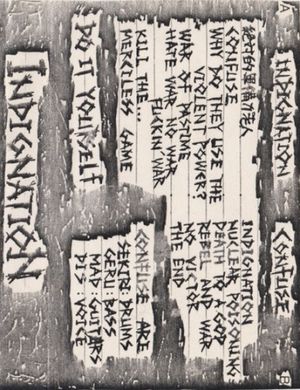 A INDIGNATION CONFUSE B
CONFUSE
WHY DO THEY USE THE
VIOLENT POWER?
WAR OF PASTIME
HATE WAR NO WAR
FUCKIN WAR
KILL THE...
MERCILESS GAME
INDIGNATION
NUCLEAR POISONING
DEATH TO A GOD
REBEL AND WAR
NO VICTOR
THE END
DO IT YOURSELF
CONFUSE ARE
DRUMS
GERU: BASS
MAD: GUITARS
VOICE
INDIGNATION